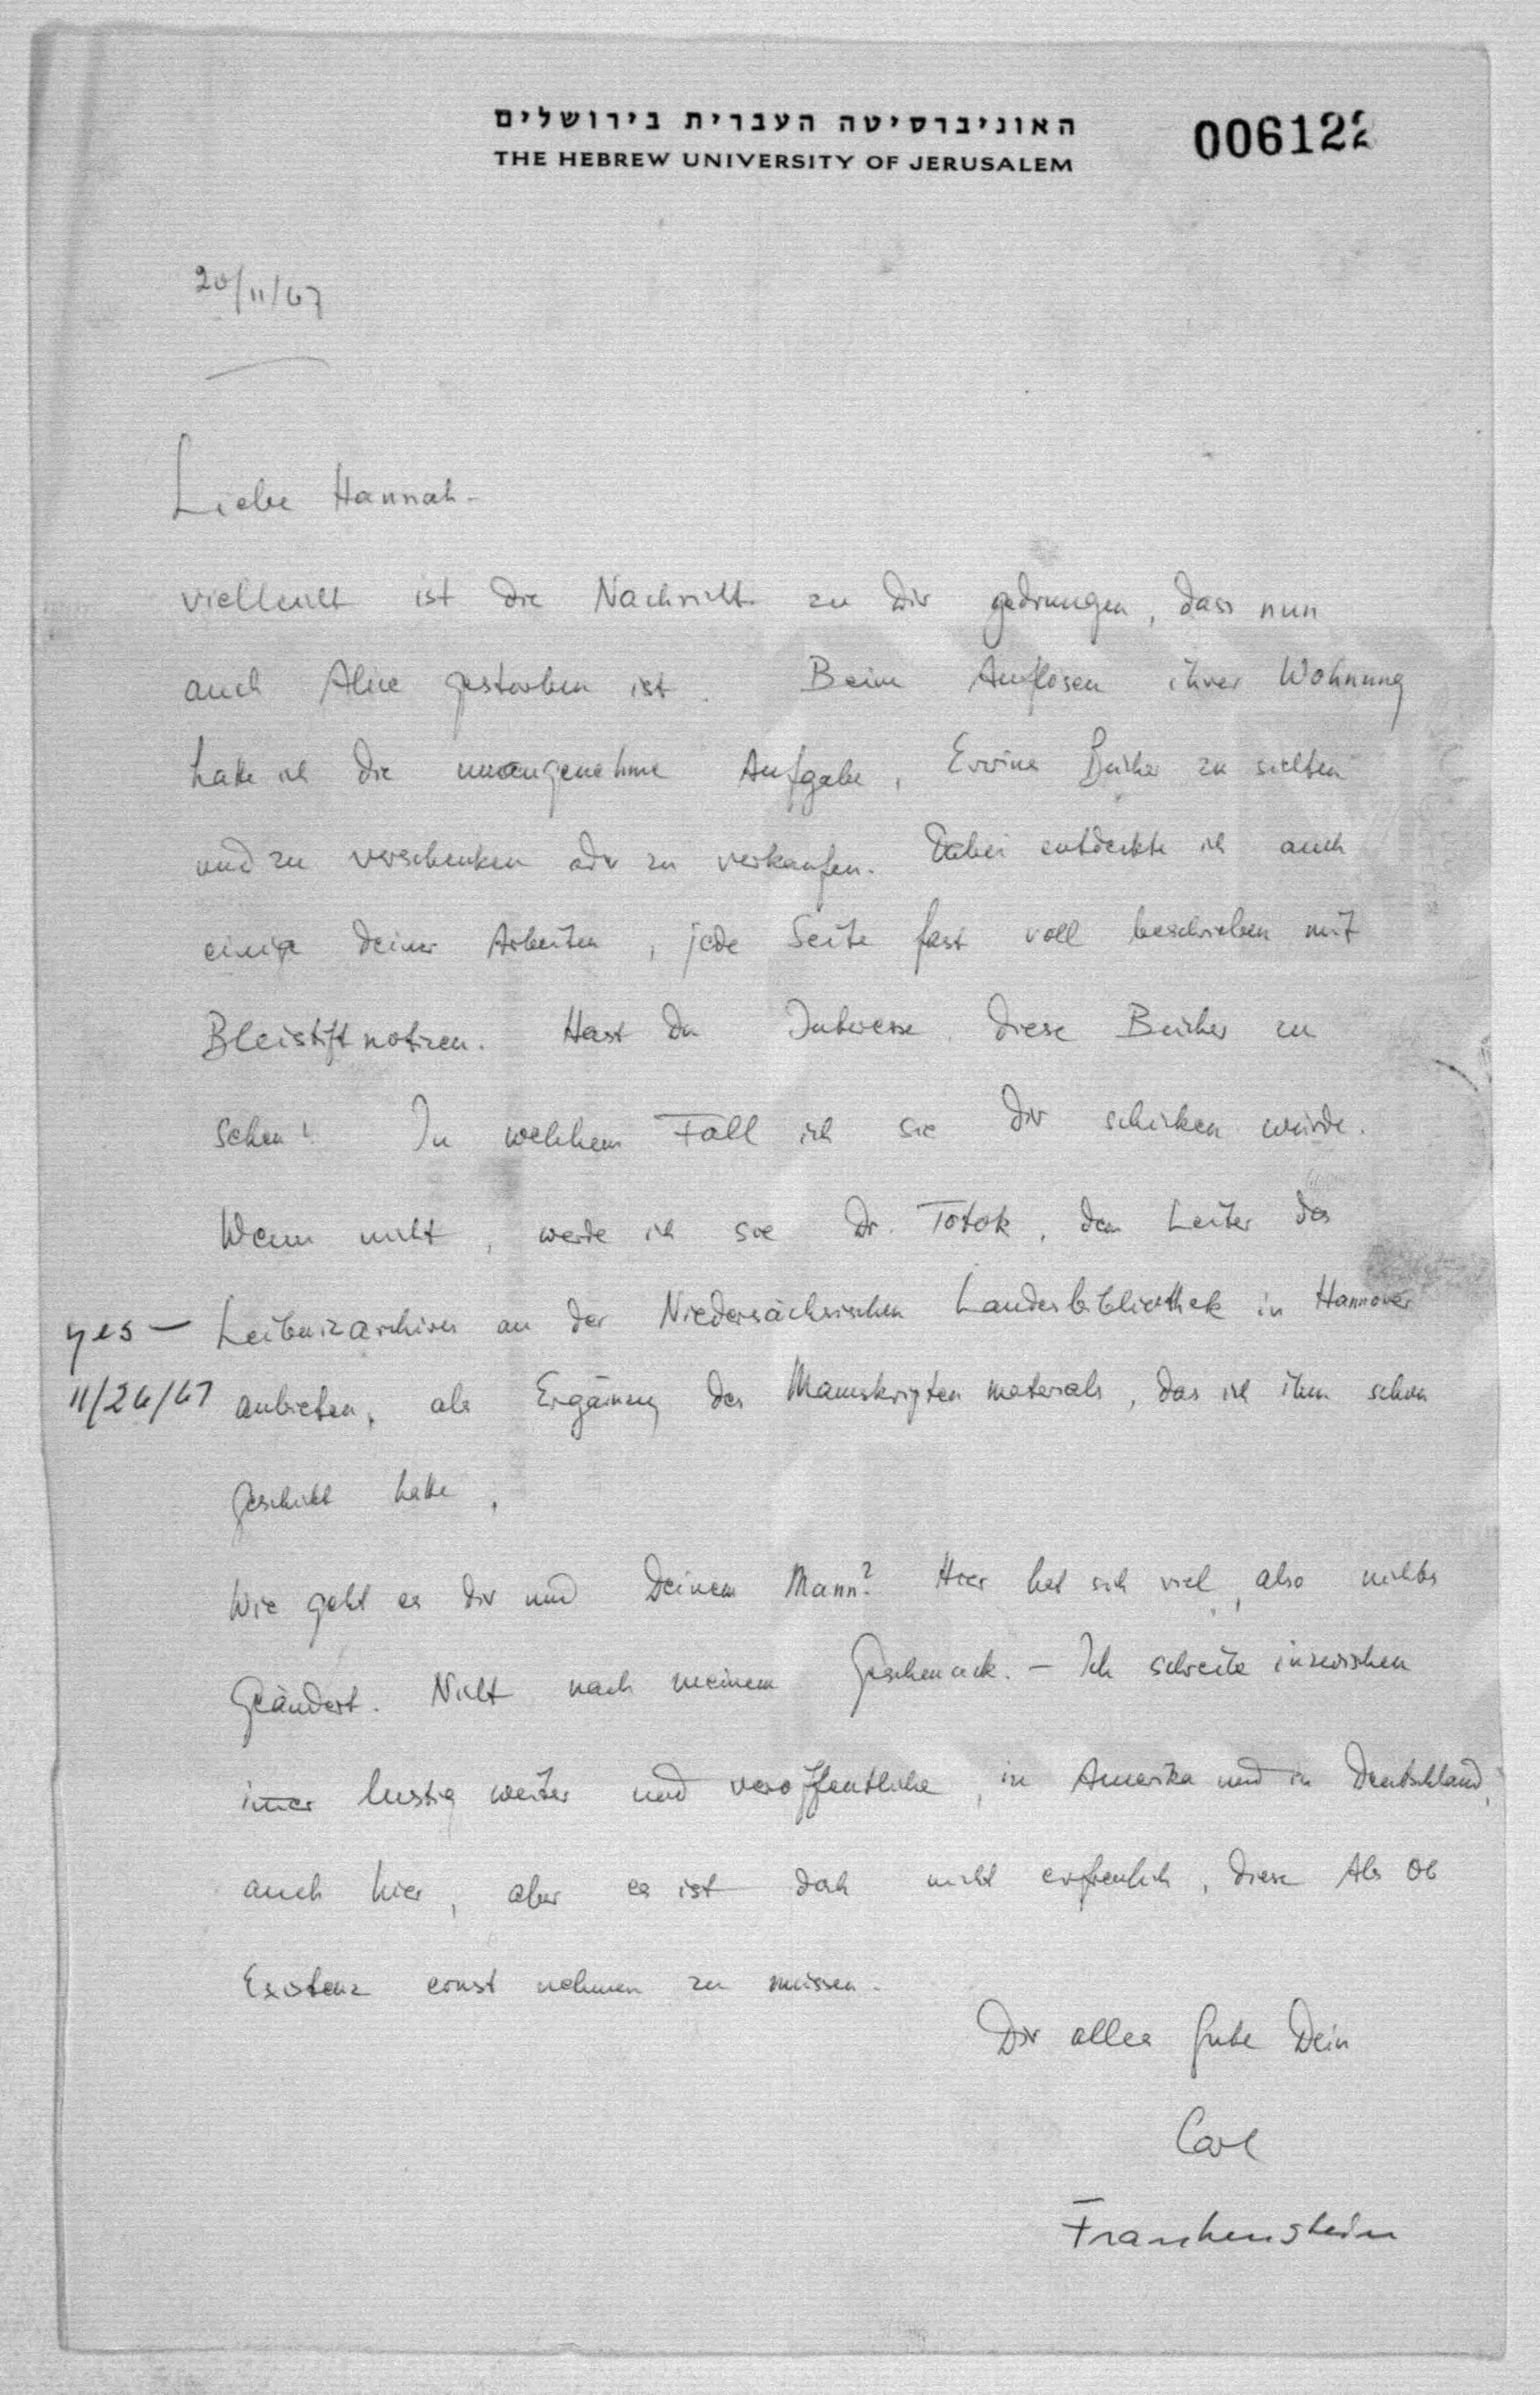 האוניברסיטה העברית בירושלים
THE HEBREW UNIVERSITY OF JERUSALEM
006122
20/11/67
Liebe Hannah-
vielleicht ist die Nachricht zu Dir gedrungen, dass nun
auch Alice gestorben ist. Beim Auflösen ihrer Wohnung
hatte ich die unangenehme Aufgabe, Erwins Bücher zu sichten
und zu verschenken oder zu verkaufen. Dabei entdeckte ich auch
einige deiner Arbeiten, jede Seite fast voll beschrieben mit
Bleistiftnotizen. Hast du Interesse diese Bücher zu
sehen? In welchem Fall ich sie dir schicken würde.
Wenn nicht, werde ich sie Dr. Totok, dem Leiter des
Leibnizarchivs an der Niedersächsischen Landesbibliothek in Hannover
yes —
11/26/67
anbieten, als Ergänzung des Manuskripten materials, das ich ihm schon
geschickt hatte.
Wie geht es dir und Deinem Mann? Hier hat sich viel, also nichts
geändert. Nicht nach meinem Geschmack. — Ich schreibe inzwischen
imer lustig weiter und veröffentliche, in Amerika und in Deutschland,
auch hier, aber es ist doch nicht erfreulich, diese Als Ob
Existenz ernst nehmen zu müssen.
Dir alles Gute Dein
Carl
Frankenstein